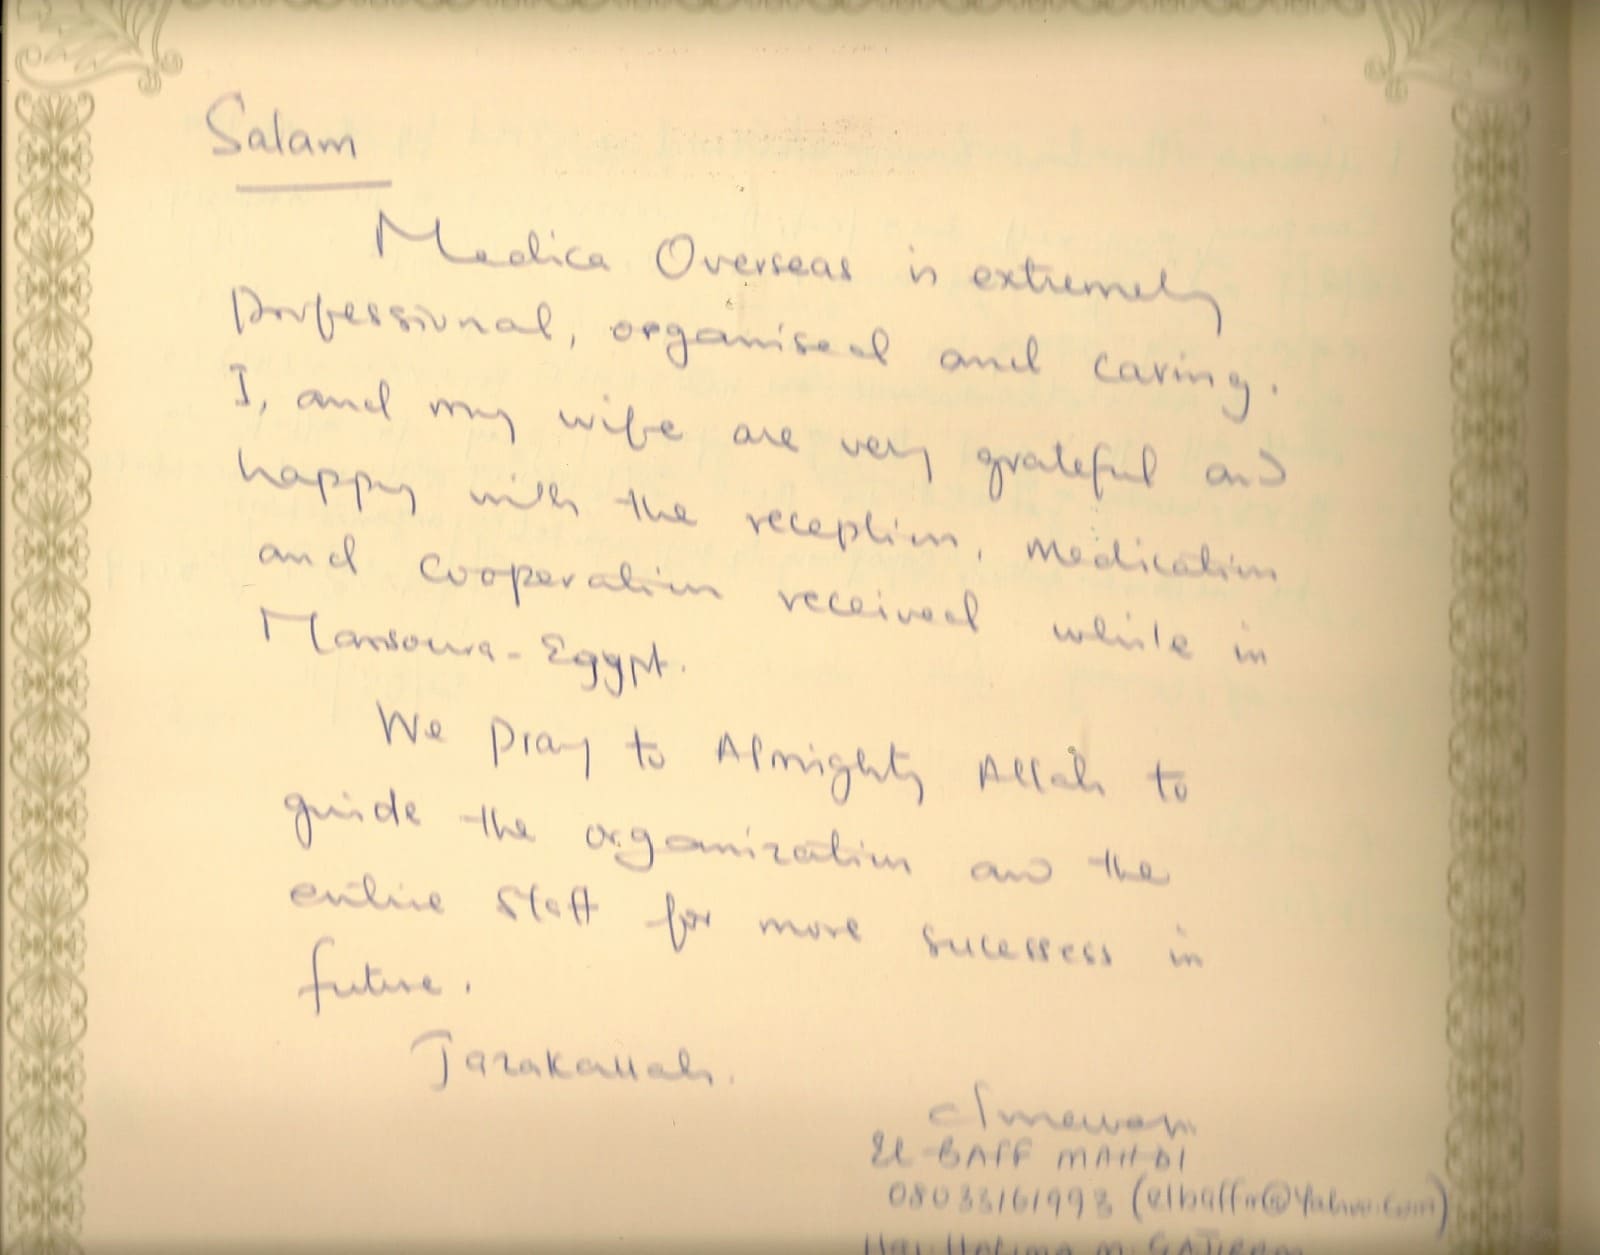 Salam
Medica Overseas is extremely
professional, organised and caring.
I, and my wife are very grateful and
happy with the reception, medication
and cooperation received while in
Mansoura - Egypt.
We pray to Almighty Allah to
guide the organization and the
entire staff for more sucessess in
future.
Jazakallah.
EL-BAFF MAHDI
08033161993